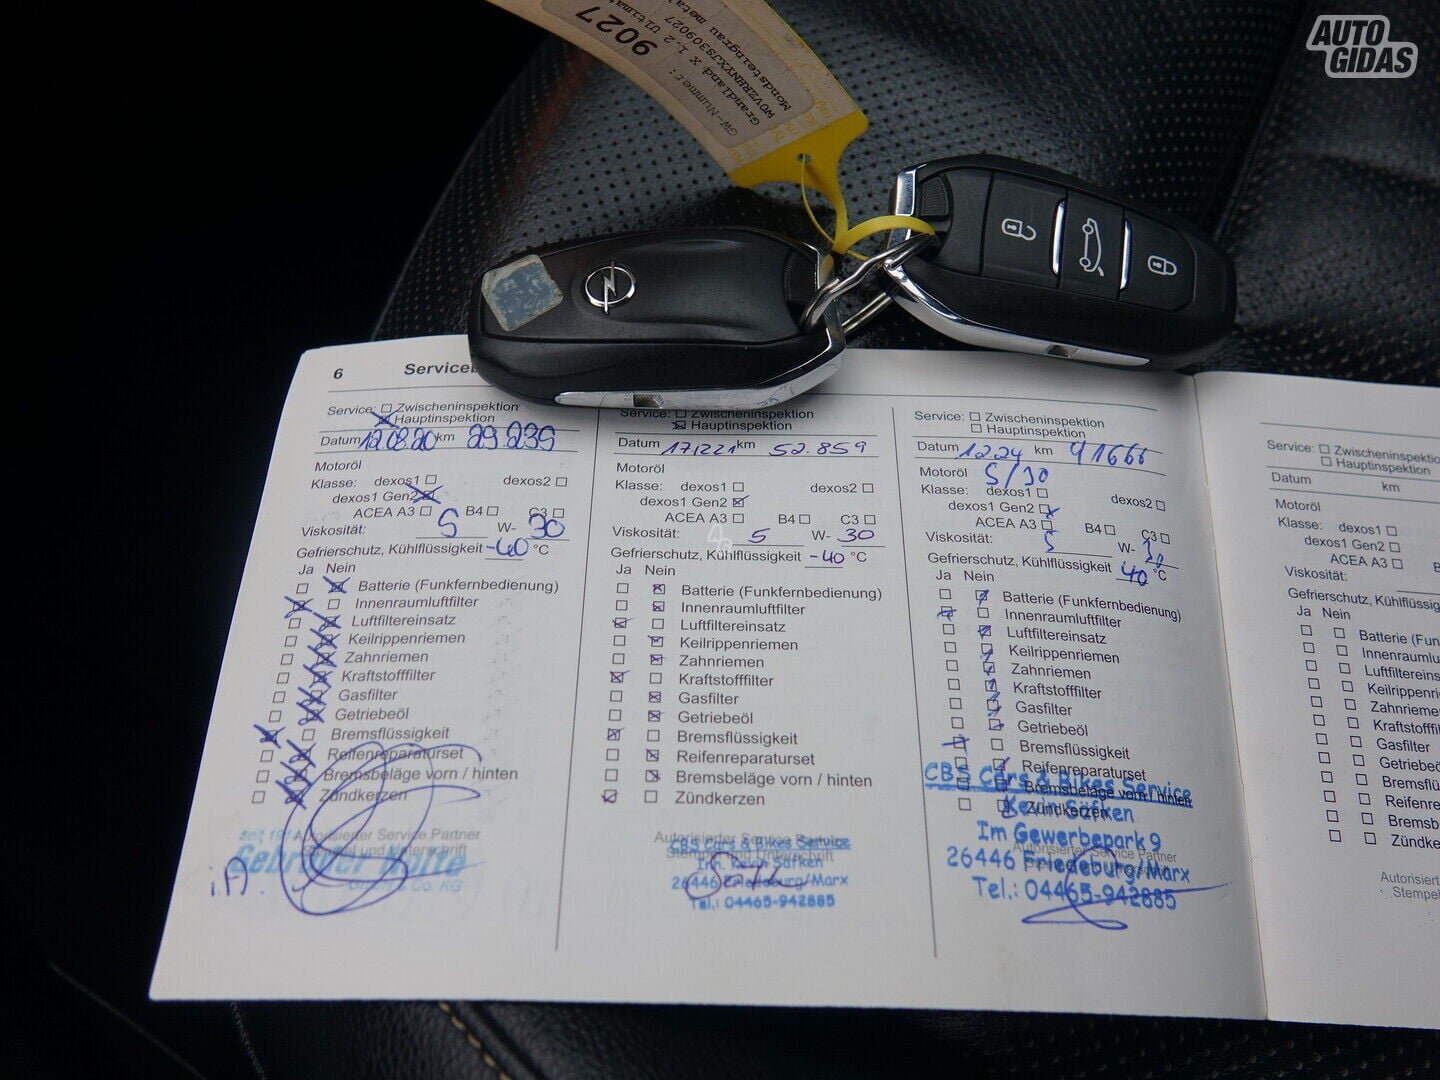 AUTO
GIDAS
GW-Nummer:
9027
Grandland X 1,2 Ultimat
Mondsteingrau meta
6
Service: Zwischeninspektion
Hauptinspektion
Datum 12.08.20 km 29.239
Motoröl
Klasse: dexos1 dexos2
dexos1 Gen2
ACEA A3 B4 C3
Viskosität: 5 W- 30
Gefrierschutz, Kühlflüssigkeit -40 °C
Ja Nein
Batterie (Funkfernbedienung)
Innenraumluftfilter
Luftfiltereinsatz
Keilrippenriemen
Zahnriemen
Kraftstofffilter
Gasfilter
Getriebeöl
Bremsflüssigkeit
Reifenreparaturset
Bremsbeläge vorn / hinten
Zündkerzen
Autorisierter Service Partner
i.A.
Service: Zwischeninspektion
Hauptinspektion
Datum 171221 km 52.859
Motoröl
Klasse: dexos1 dexos2
dexos1 Gen2
ACEA A3 B4 C3
Viskosität: 5 W- 30
Gefrierschutz, Kühlflüssigkeit -40 °C
Ja Nein
Batterie (Funkfernbedienung)
Innenraumluftfilter
Luftfiltereinsatz
Keilrippenriemen
Zahnriemen
Kraftstofffilter
Gasfilter
Getriebeöl
Bremsflüssigkeit
Reifenreparaturset
Bremsbeläge vorn / hinten
Zündkerzen
Autorisierter Service Partner
Stempel und Unterschrift
CBS Cars & Bikes Service
Inh. Kevin Säfken
26446 Friedeburg/Marx
Tel.: 04465-942885
Service: Zwischeninspektion
Hauptinspektion
Datum 12.24 km 91666
Motoröl 5/30
Klasse: dexos1 dexos2
dexos1 Gen2
ACEA A3 B4 C3
Viskosität: 5 W- 30
Gefrierschutz, Kühlflüssigkeit 40 °C
Ja Nein
Batterie (Funkfernbedienung)
Innenraumluftfilter
Luftfiltereinsatz
Keilrippenriemen
Zahnriemen
Kraftstofffilter
Gasfilter
Getriebeöl
Bremsflüssigkeit
Reifenreparaturset
Bremsbeläge vorn / hinten
Zündkerzen
CBS Cars & Bikes Service
Kevin Säfken
Im Gewerbepark 9
Autorisierter Service Partner
26446 Friedeburg/Marx
Tel.: 04465-942885
Service: Zwischeninspektio
Hauptinspektion
Datum km
Motoröl
Klasse: dexos1
dexos1 Gen2
ACEA A3
Viskosität:
Gefrierschutz, Kühlflüssig
Ja Nein
Batterie (Fun
Innenraumlu
Luftfilterein
Keilrippenri
Zahnrieme
Kraftstofff
Gasfilter
Getriebeö
Bremsflü
Reifenre
Bremsb
Zündke
Autorisiert
Stempel